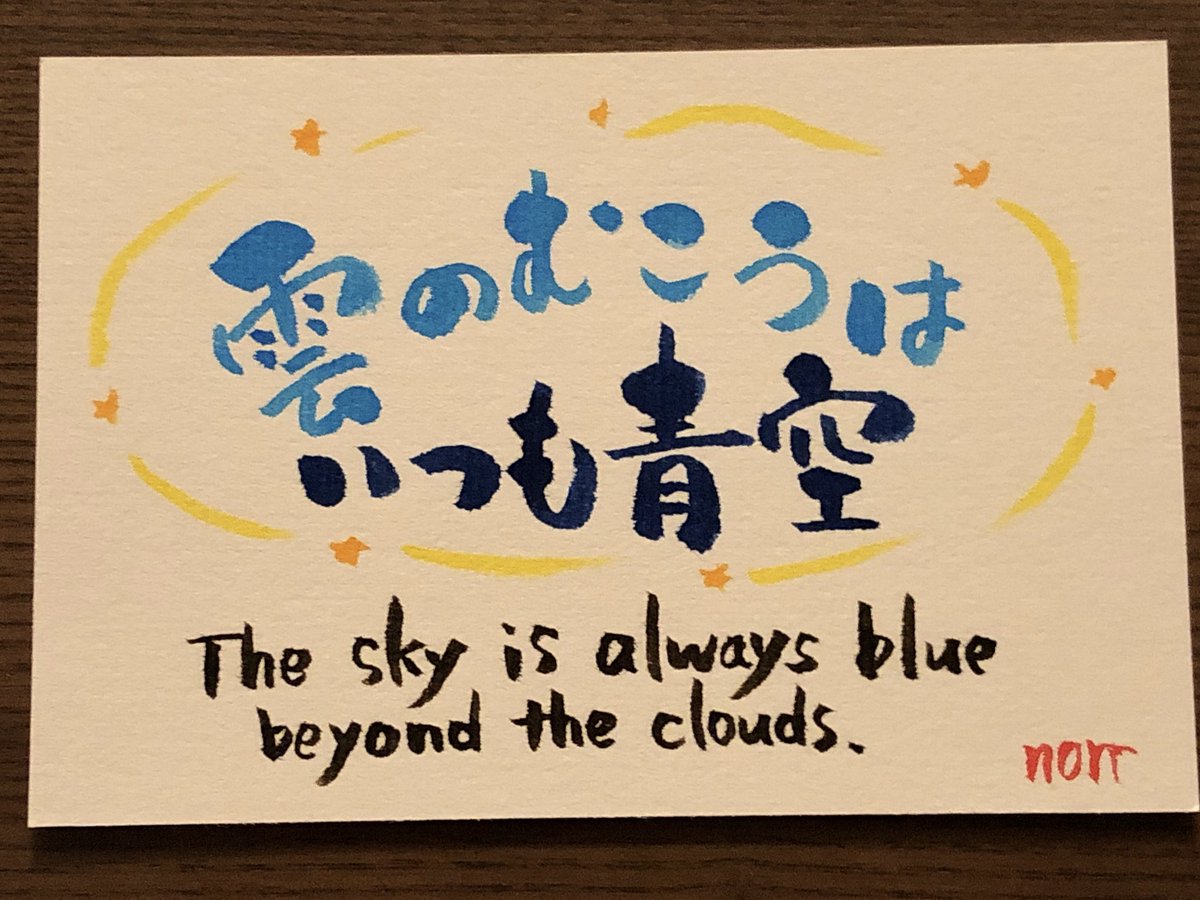 雲のむこうは
いつも青空
The sky is always blue
beyond the clouds.